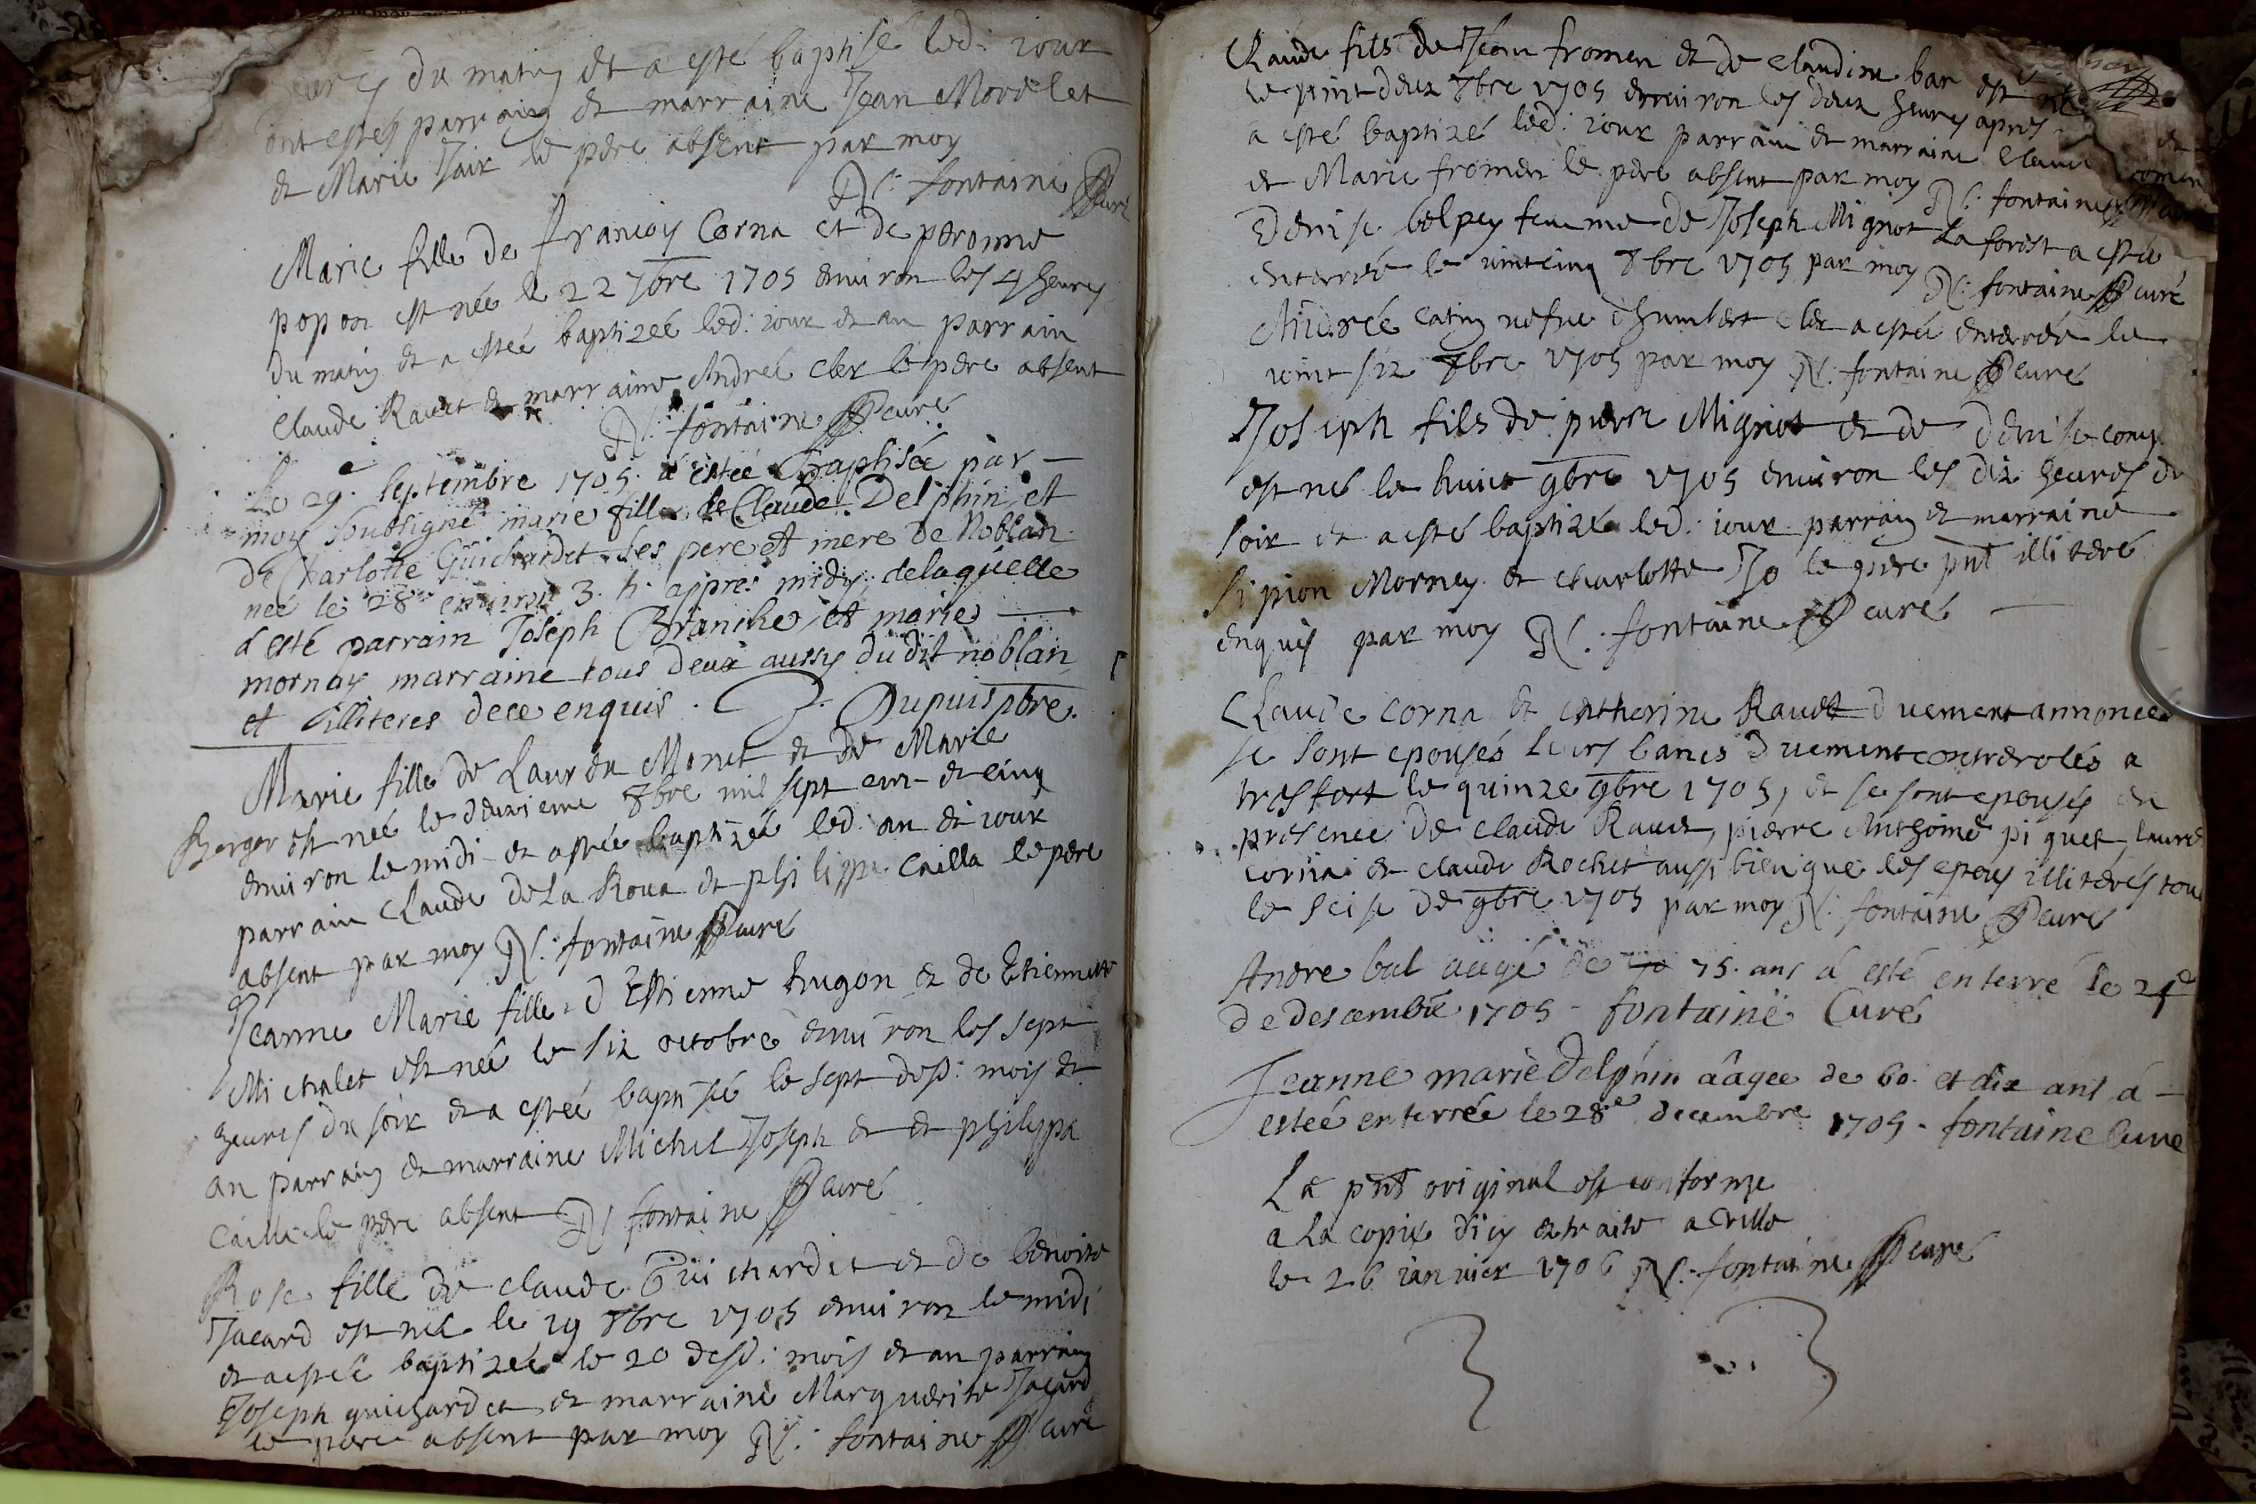 heures du matin et a esté baptisé led: jour
ont estés parrain et marraine Jean Morelet
et Marie Jair le père absent par moy
N: fontaine curé
Marie fille de françois Corna et de peronne
popon est née le 22 7bre 1705 environ les 4 heures
du matin et a estée baptizeé led: jour et an parrain
Claude Ravet et marraine Andreé cler le père absent
N: fontaine curé
Le 29. septembre 1705. a estée Baptisée par
moy soubsigné marie fille de Claude Delphin et
de Charlotte Guichardet ses pere et mere de Noblan
neé le 28e environ 3. h. apprs midy. delaquelle
a esté parrain Joseph Branche et marie
mornay marraine tous deux aussy du dit noblan
et illiteres de ce enquis. Dupuis pbre.
Marie fille de Laurên Monet et de Marie
Berger est neé le deuxieme 8bre mil sept cent et cinq
environ le midi et a estée baptizeé led: an et jour
parrain Claude de La Roua et philippe Cailla le père
absent par moy N: fontaine curé
Jeanne Marie fille d Estienne hugon et de Etiennette
Michalet est neé le six octobre environ les sept
heures du soir et a estée baptisée le sept desd: mois et
an parrain et marraine Michel Joseph et et philippe
Cailla le père absent N: fontaine curé
Rose fille de Claude Guichardet et de benoite
Jacard est neé le 19 8bre 1705 environ le midi
et a estée baptizeé le 20 desd: mois et an parrain
Joseph guichardet et marraine Marguerite Jacard
le père absent par moy N: fontaine curé
Claude fils de Jean fromen et de Claudine bar est né
le vint deux 8bre 1705 environ les deux heures apres
a esté baptizé led: jour parrain et marraine Claude fromen
et Marie fromen le père absent par moy N: fontaine curé
Denise bolpey femme de Joseph Mignot La forest a esté
enterreé le vintcinq 8bre 1705 par moy N: fontaine curé
Andreé catin vefve d humbert cler a esté enterrée le
vint six 8bre 1705 par moy N: fontaine curé
Joseph fils de pierre Mignot et de denise
est né le huict 9bre 1705 environ les dix heures du
soir et a esté baptizé led: jour parrain et marraine
Sipion Mornay et Charlotte Jo le père pnt illiteré
enquis par moy N: fontaine curé
Claude Corna et Catherine Ravet duement annoncés
se sont epousés leurs bancs duement controrolés a
tresfort le quinze 9bre 1705, et se sont epousés en
presence de Claude Ravet, pierre Anthoine piquet, laurê
corna et claude Rochet aussi bien que les epoux illiterés tous
le seise de 9bre 1705 par moy N: fontaine curé
Andre bal aagé de 70 75. ans a esté enterré le 21e
de desembre 1705 - fontaine Curé
Jeanne marie Delphin aâgee de 60. et dix ans a
estée enterrée le 28e decembre 1705 - fontaine Curé
Le pnt original est conforme
a La copie d icy extraite a Crille
le 26 janvier 1706 N: fontaine curé